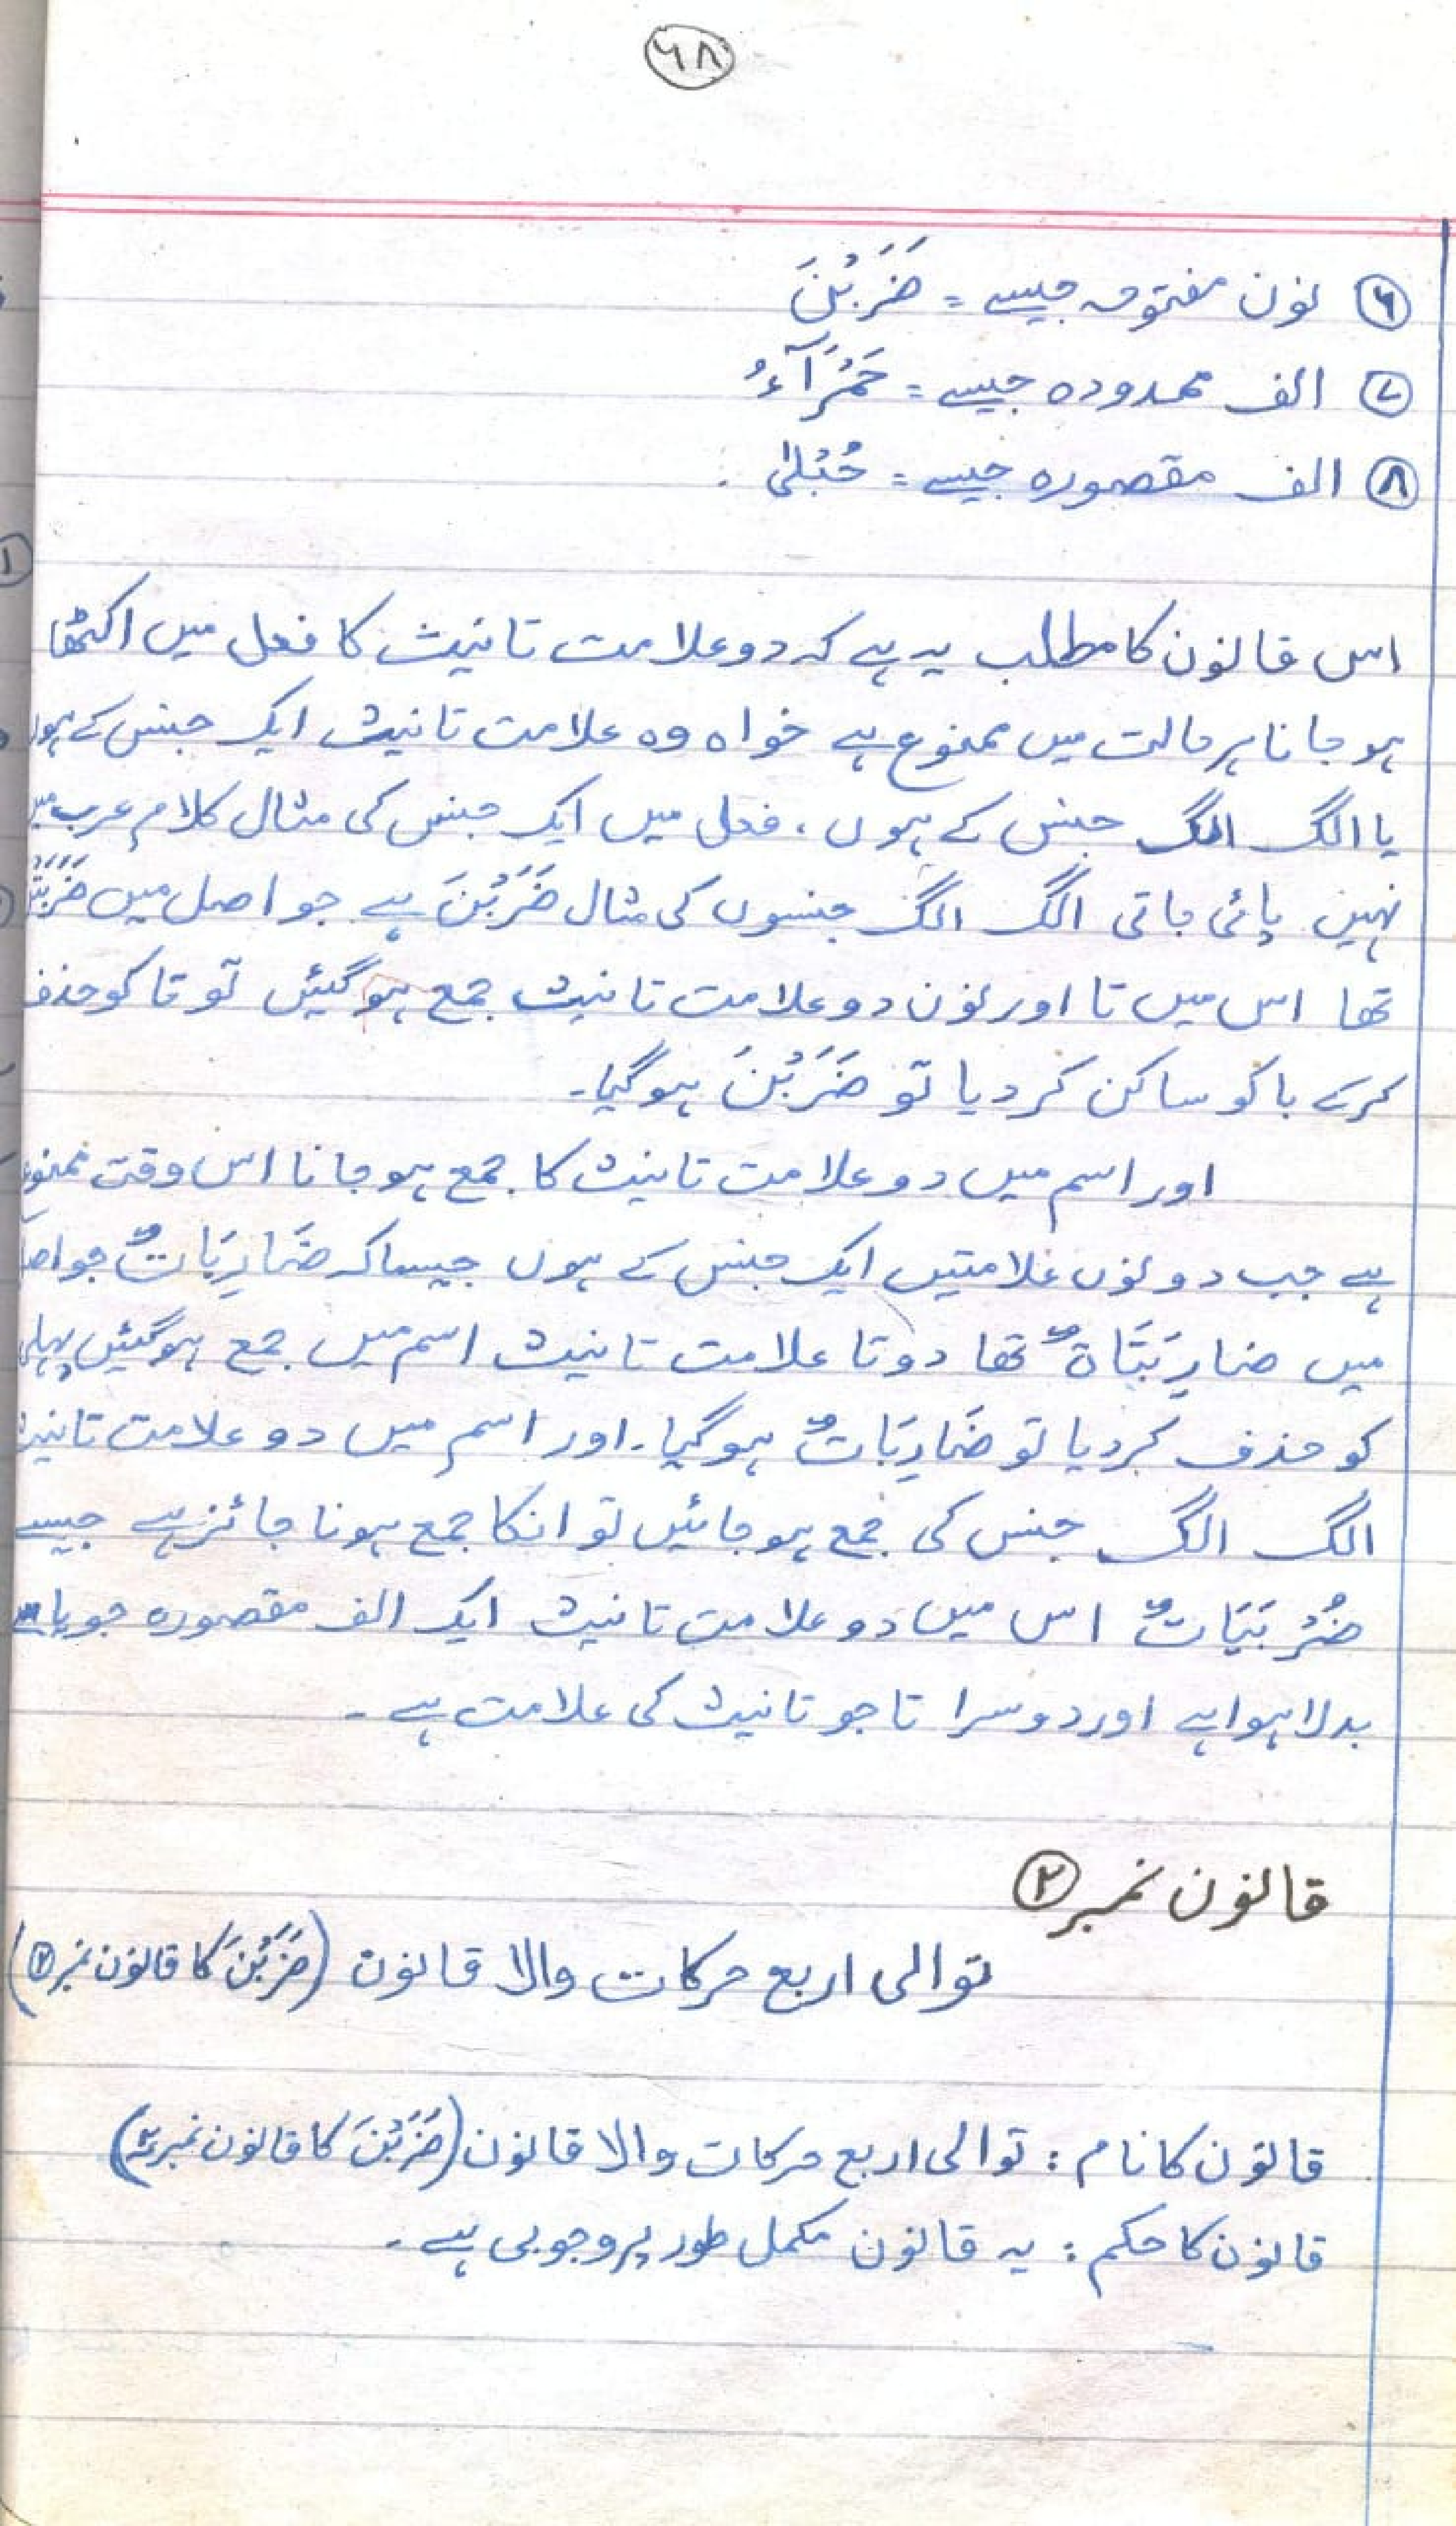 ۶۸
۶ نون مفتوحہ جیسے = ضَرَبْنَ
۷ الف ممدودہ جیسے = حَمْرَآءُ
۸ الف مقصورہ جیسے = حُبْلیٰ .
اس قانون کا مطلب یہ ہے کہ دو علامت تانیث کا فعل میں اکٹھا
ہو جانا ہر حالت میں ممنوع ہے خواہ وہ علامت تانیث ایک جنس کے ہوں
یا الگ الگ جنس کے ہوں ، فعل میں ایک جنس کی مثال کلام عرب میں
نہیں پائی جاتی الگ الگ جنسوں کی مثال ضَرَبْنَ ہے جو اصل میں
تھا اس میں تا اور نون دو علامت تانیث جمع ہو گئیں تو تا کو حذف
کرکے با کو ساکن کر دیا تو ضَرَبْنَ ہوگیا۔
اور اسم میں دو علامت تانیث کا جمع ہو جانا اس وقت ممنوع
ہے جب دونوں علامتیں ایک جنس کے ہوں جیساکہ ضَارِبَاتٌ جو
میں ضارِبَتَاۃٌ تھا دو تا علامت تانیث اسم میں جمع ہوگئیں پہلی
کو حذف کر دیا تو ضَارِبَاتٌ ہوگیا۔ اور اسم میں دو علامت تانیث
الگ الگ جنس کی جمع ہو جائیں تو انکا جمع ہونا جائز ہے جیسے
ضُرْبَیَاتٌ اس میں دو علامت تانیث ایک الف مقصورہ جو یا سے
بدلا ہوا ہے اور دوسرا تا جو تانیث کی علامت ہے ۔
قانون نمبر ۲
توالی اربع حرکات والا قانون (ضَرَبْنَ کا قانون نمبر ۲)
قانون کا نام : توالی اربع حرکات والا قانون (ضَرَبْنَ کا قانون نمبر ۲)
قانون کا حکم : یہ قانون مکمل طور پر وجوبی ہے ۔